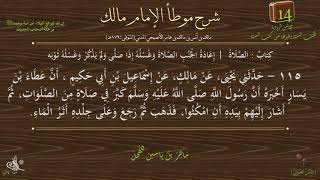 شرح موطأ الإمام مالك
14
كتاب : الصلاة | إعادة الجنب الصلاة وغسله إذا صلى ولم يذكر وغسله ثوبه
١١٥ - حَدَّثَنِي يَحْيَى، عَنْ مَالِكٍ، عَنْ إِسْمَاعِيلَ بْنِ أَبِي حَكِيمٍ ، أَنَّ عَطَاءَ بْنَ
يَسَارٍ أَخْبَرَهُ أَنَّ رَسُولَ اللَّهِ صَلَّى اللَّهُ عَلَيْهِ وَسَلَّمَ كَبَّرَ فِي صَلَاةٍ مِنَ الصَّلَوَاتِ، ثُمَّ
أَشَارَ إِلَيْهِمْ بِيَدِهِ أَنِ امْكُثُوا، فَذَهَبَ ثُمَّ رَجَعَ وَعَلَى جِلْدِهِ أَثَرُ الْمَاءِ.
ماهر بن ياسين الفحل